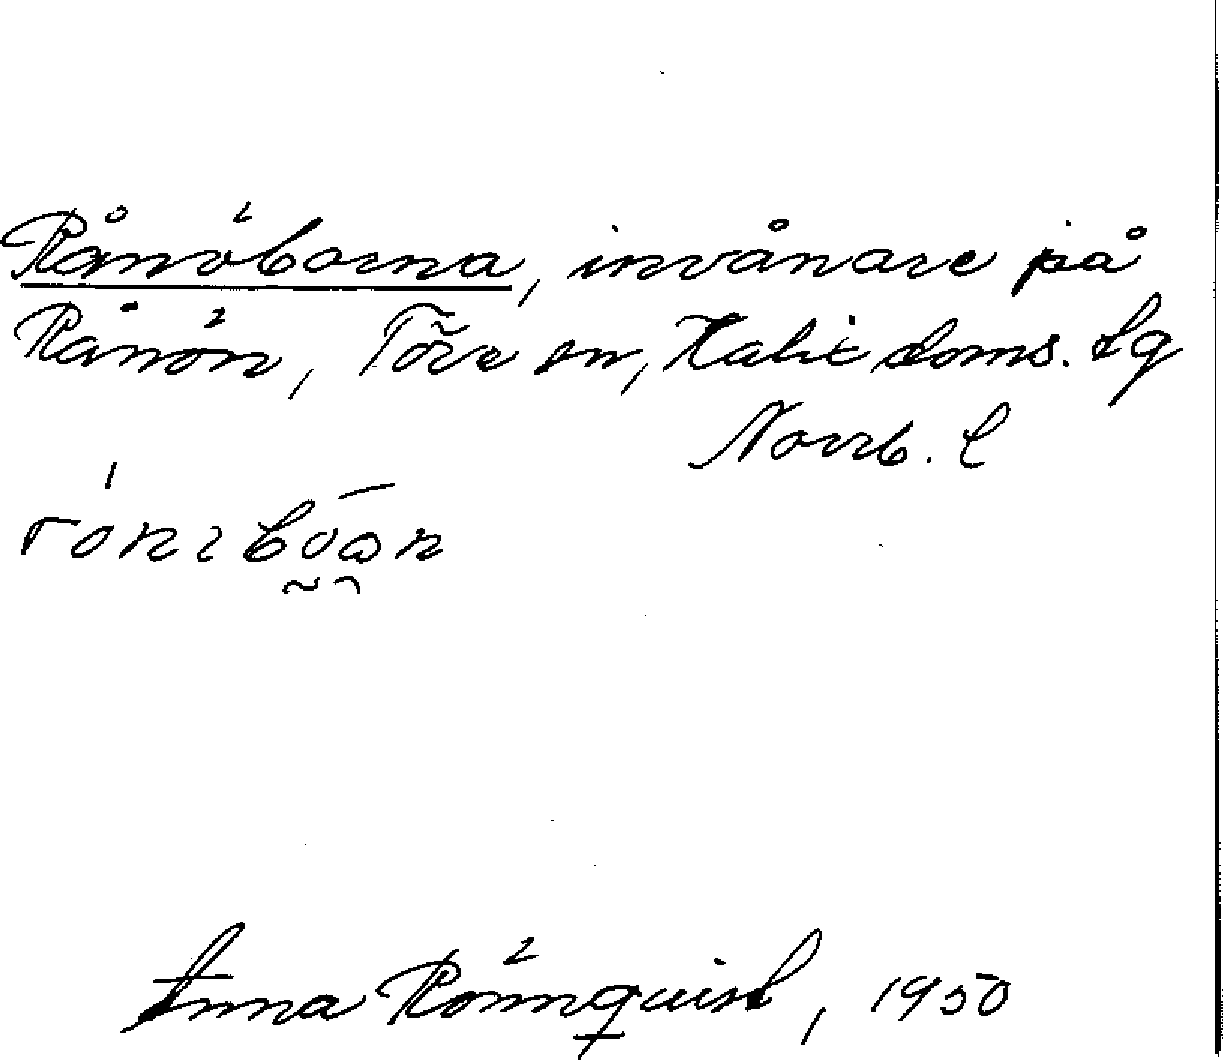 Rånöborna, invånare på
Rånön, Töre sn, Kalix doms. lg
Norrb. l
Anna Rönnquist, 1950